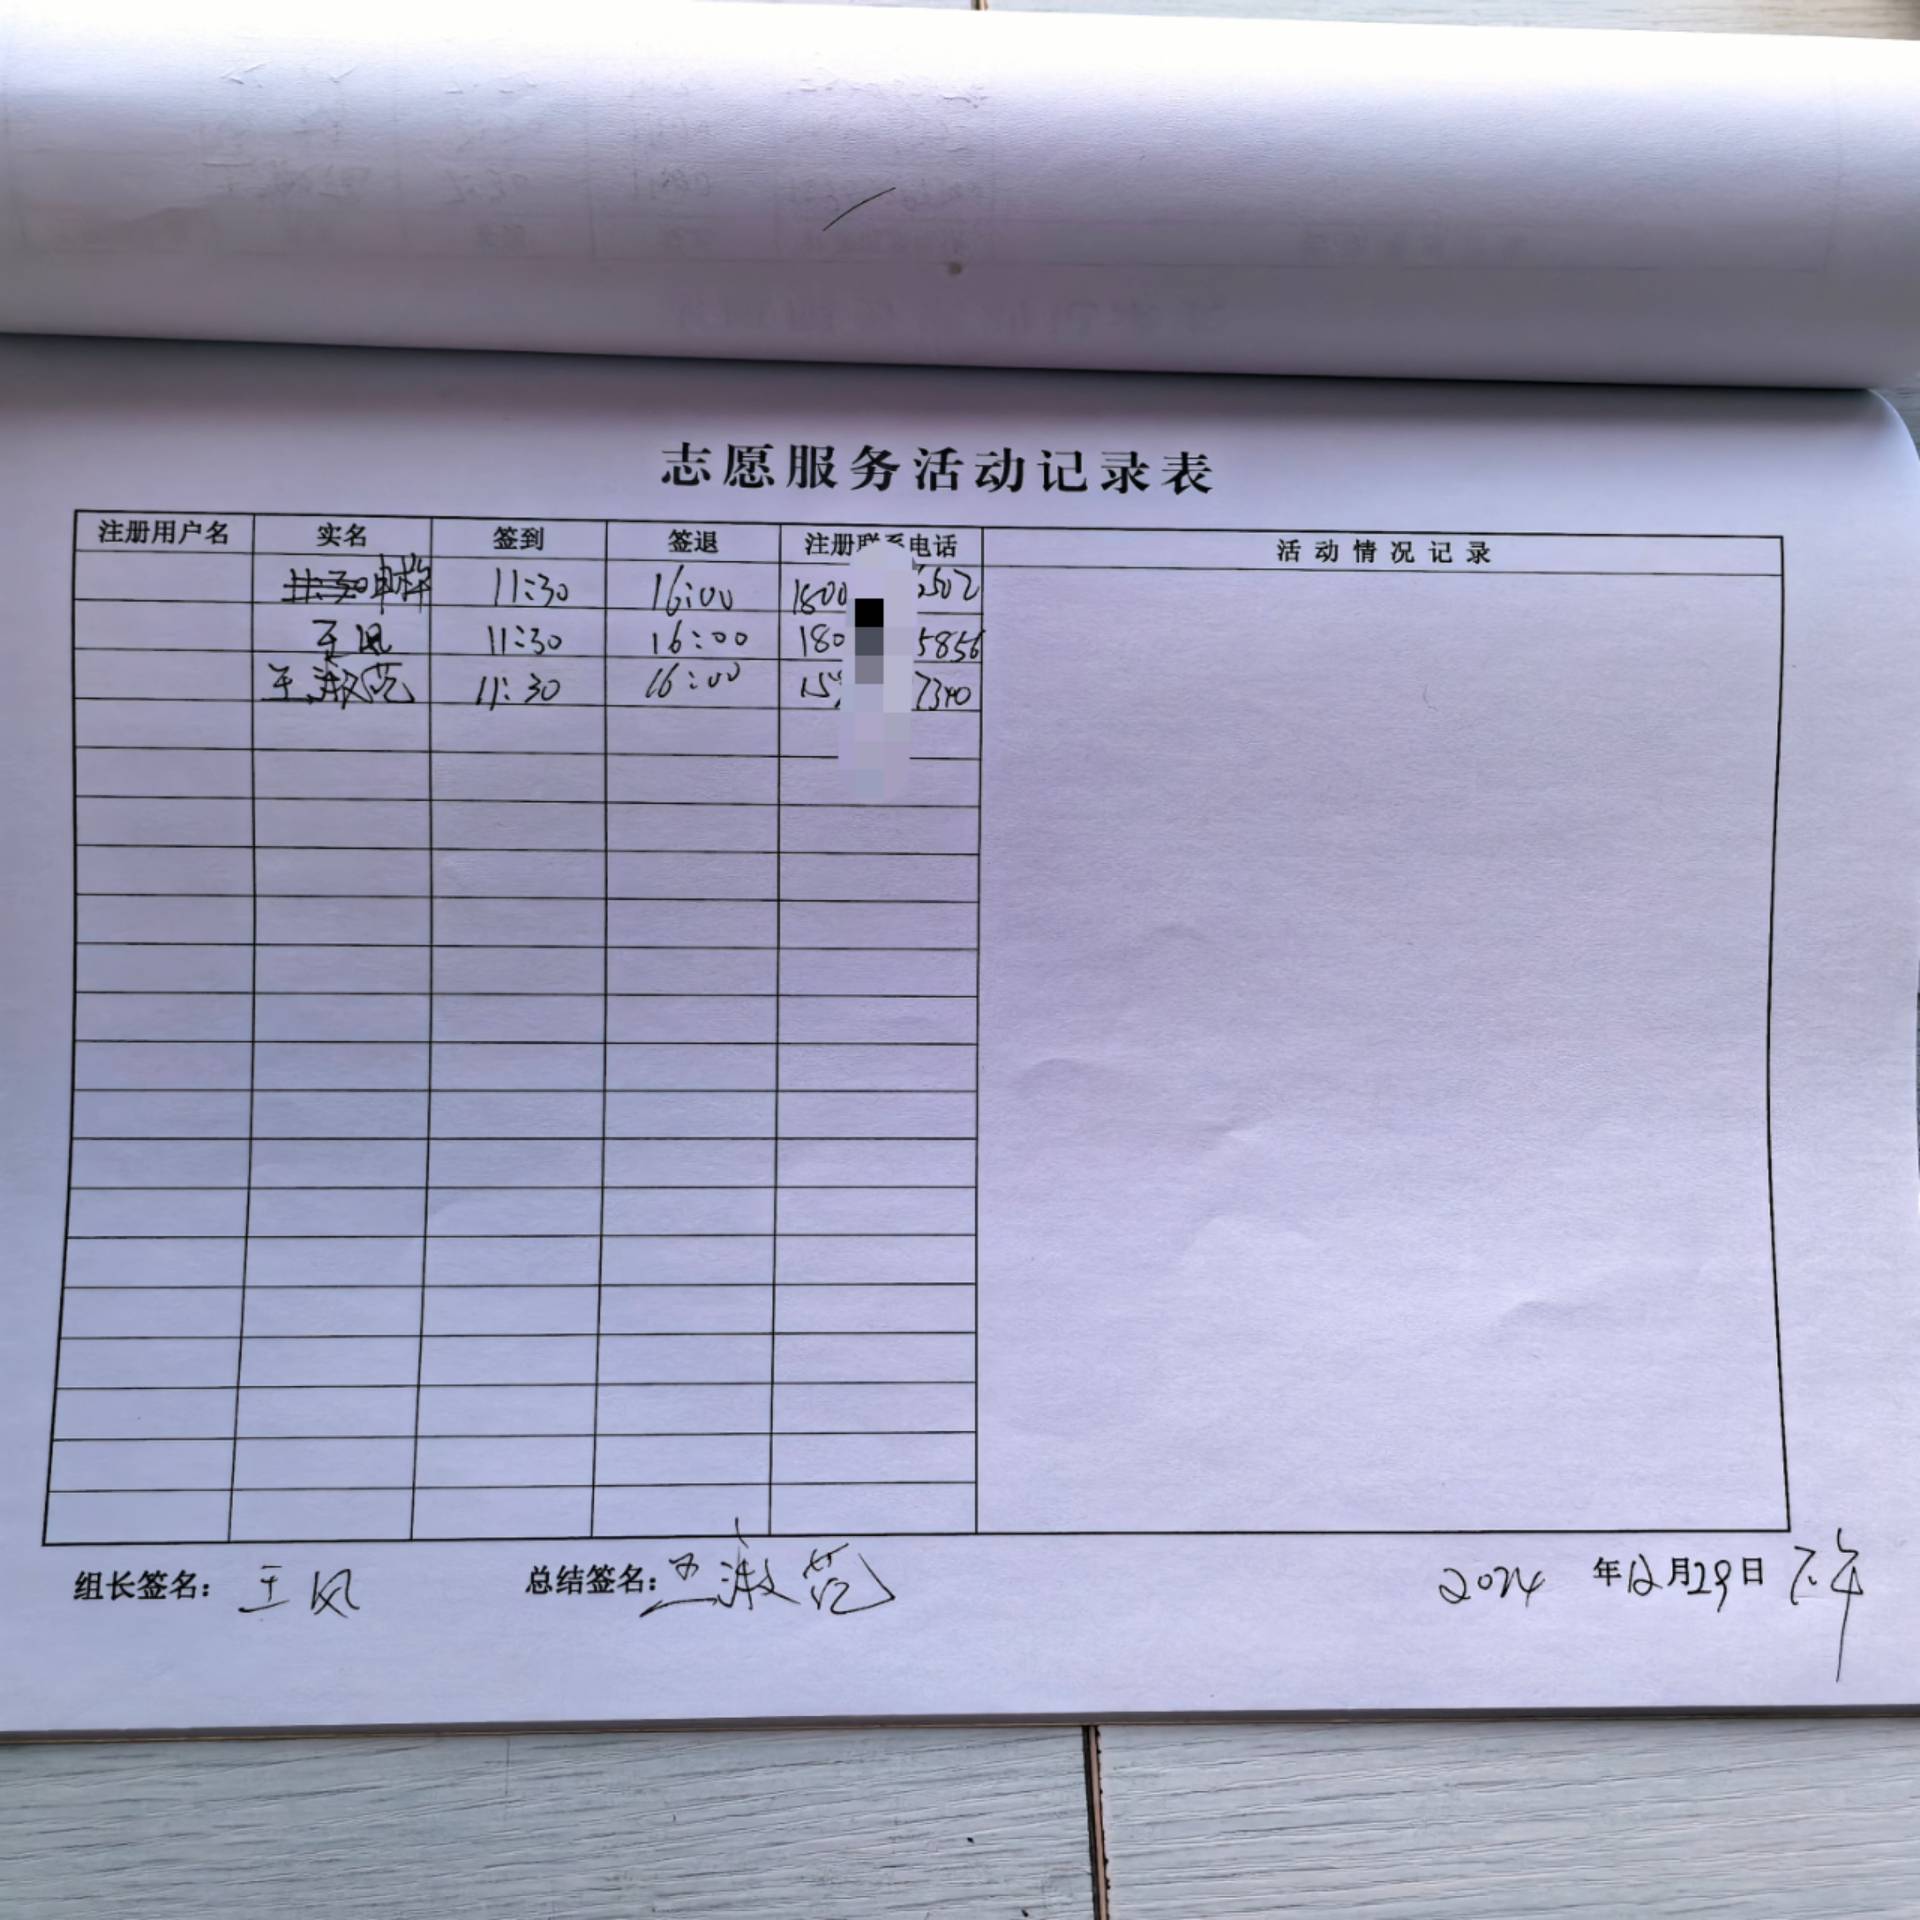 志愿服务活动记录表
注册用户名 实名 签到 签退 注册联系电话 活动情况记录
11:30 11:30 16:00 1800 6502
王风 11:30 16:00 180 5856
王淑范 11:30 16:00 15 7340
组长签名: 王风 总结签名: 王淑范 2024 年12月29日 下午